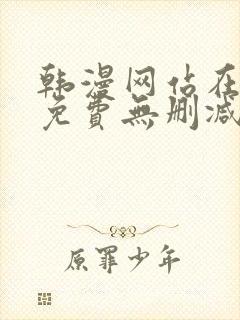 韩漫网站在
免費無删减
原罪少年